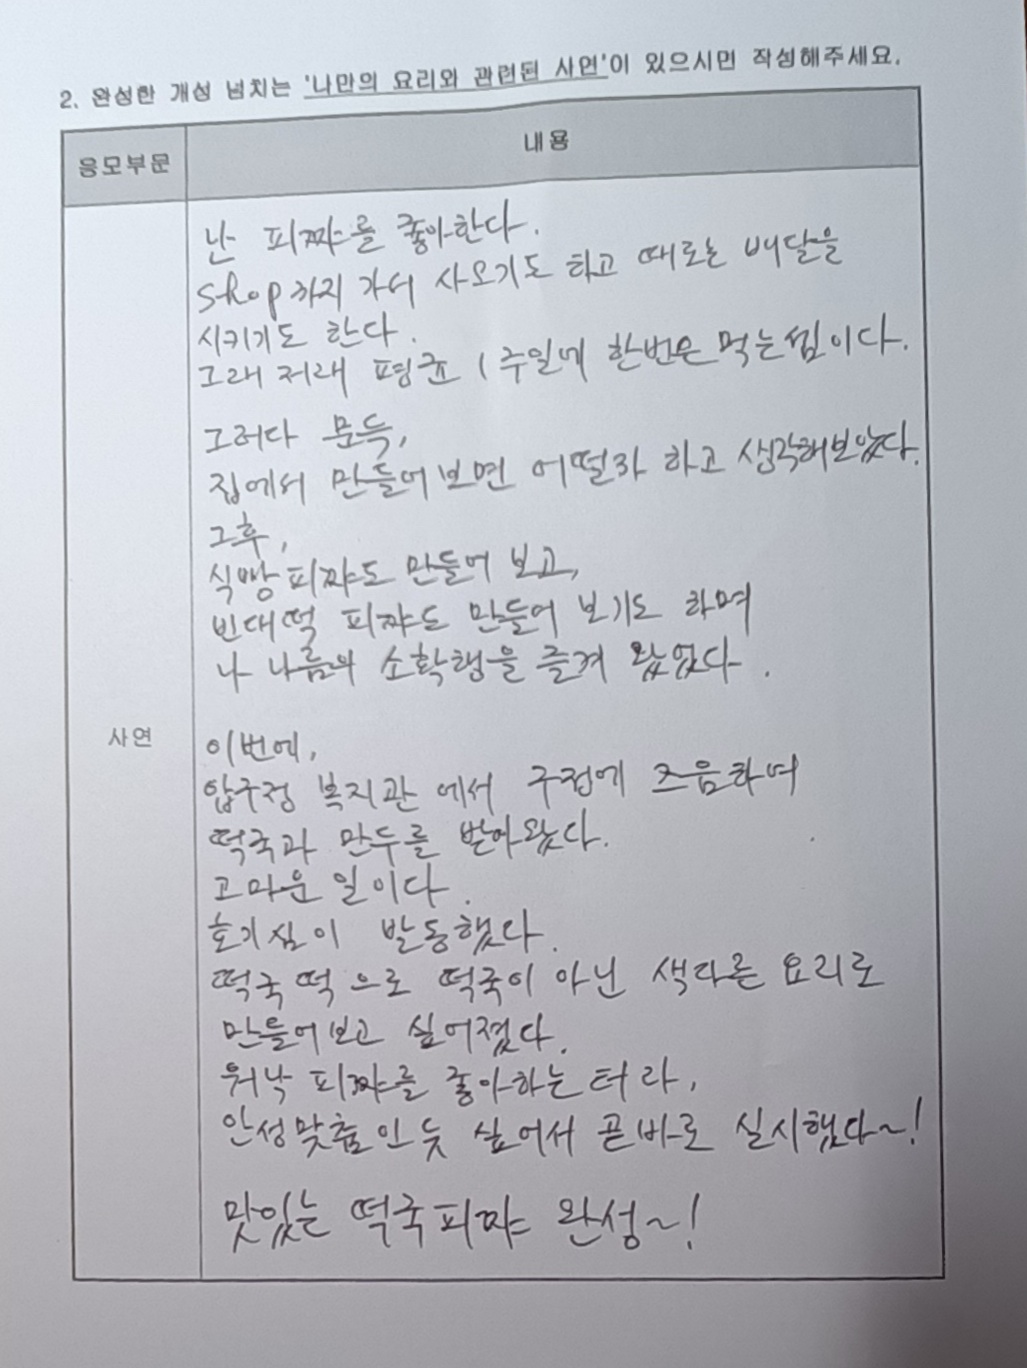 2. 완성한 개성 넘치는 '나만의 요리와 관련된 사연'이 있으시면 작성해주세요.
응모부문
내용
사연
난 피짜를 좋아한다.
shop까지 가서 사오기도 하고 때로는 배달을
시키기도 한다.
그래저래 평균 1주일에 한번은 먹는셈이다.
그러다 문득,
집에서 만들어보면 어떨까 하고 생각해보았다.
그후,
식빵피짜도 만들어 보고,
빈대떡 피짜도 만들어 보기도 하며
나 나름의 소확행을 즐겨 왔었다.
이번에,
압구정 복지관에서 구정에 즈음하여
떡국과 만두를 받아왔다.
고마운 일이다.
호기심이 발동했다.
떡국떡으로 떡국이 아닌 색다른 요리로
만들어보고 싶어졌다.
워낙 피짜를 좋아하는터라,
안성맞춤인듯 싶어서 곧바로 실시했다~!
맛있는 떡국피짜 완성~!